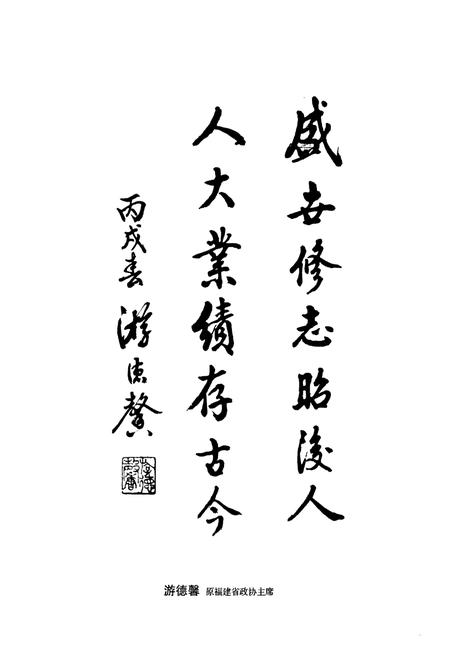 盛世修志昭後人
人大業績存古今
丙戌春 游德馨
游德馨 原福建省政协主席